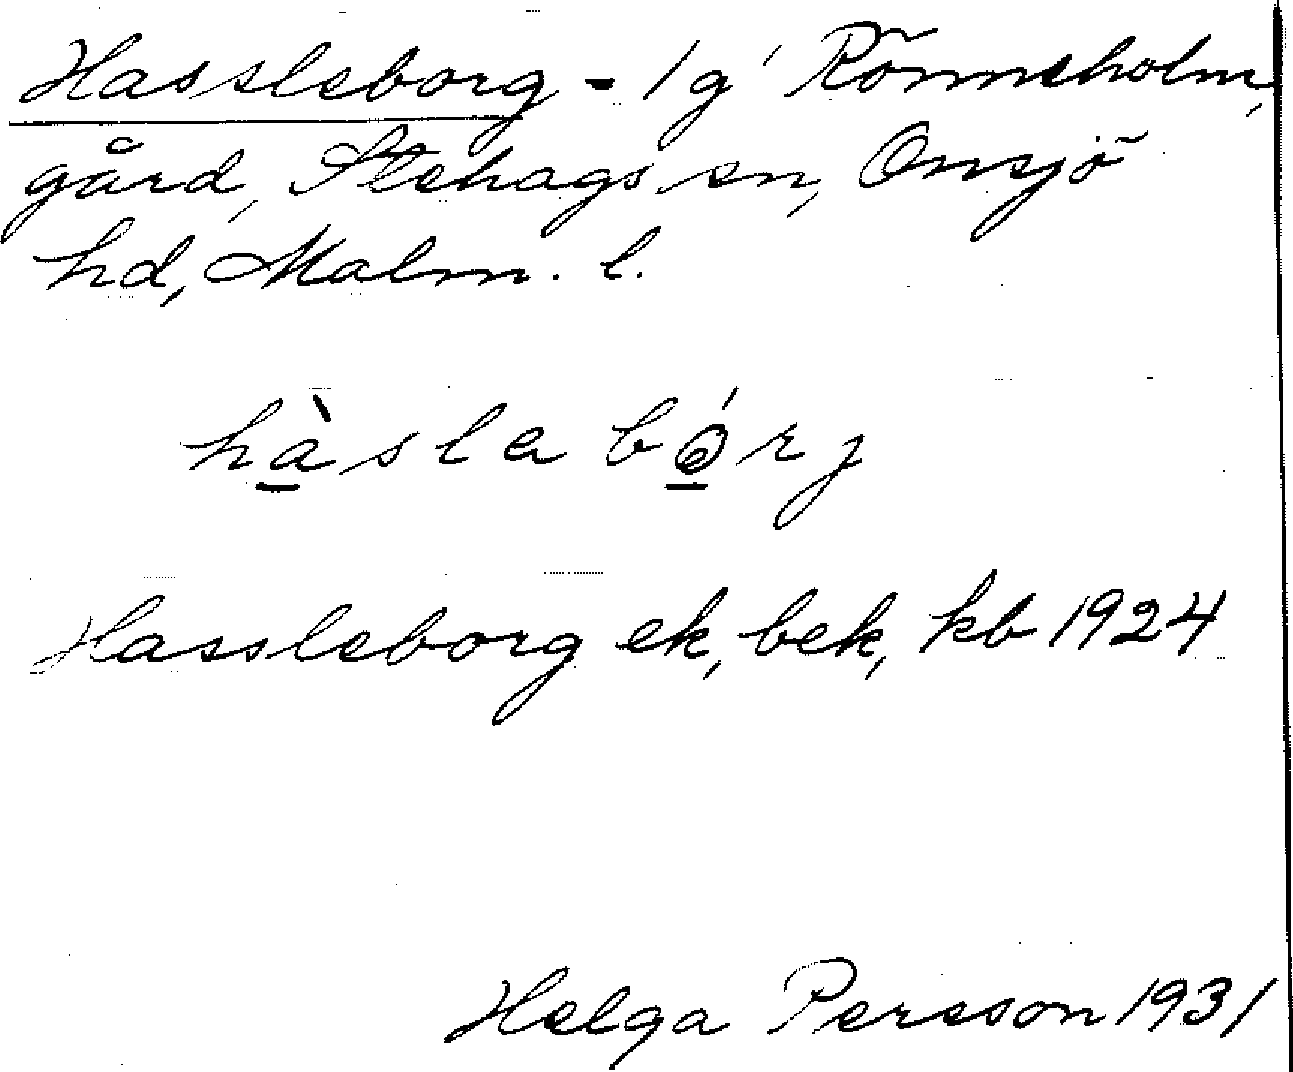 Hassleborg - lg' Rönneholm,
gård, Stehags sn, Onsjö
hd, Malm. l.
hàslabórj
Hassleborg ek, bek, kb 1924
Helga Persson 1931